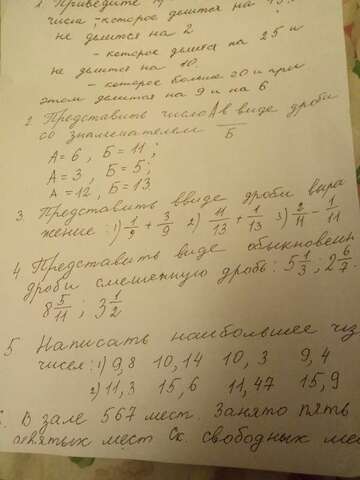 1. Приведите
числа, - которое делится на
не делится на 2
- которое делится на 25 и
не делится на 10.
- которое больше 20 и при
этом делится на 9 и на 6
2. Представить число А в виде дроби
со знаменателем Б
А = 6, Б = 11;
А = 3, Б = 5;
А = 12, Б = 13.
3. Представить ввиде дроби выра
жение: 1) 1/9 + 3/9 2) 11/13 + 1/13 3) 2/11 - 1/11
4. Представить виде обыкновенн
дроби смешенную дробь: 5 1/3; 2 6/7
8 5/11; 3 1/2
5 Написать наибольшее из
чисел: 1) 9,8 10,14 10,3 9,4
2) 11,3 15,6 11,47 15,9
В зале 567 мест. Занято пять
девятых мест Ск. свободных ме